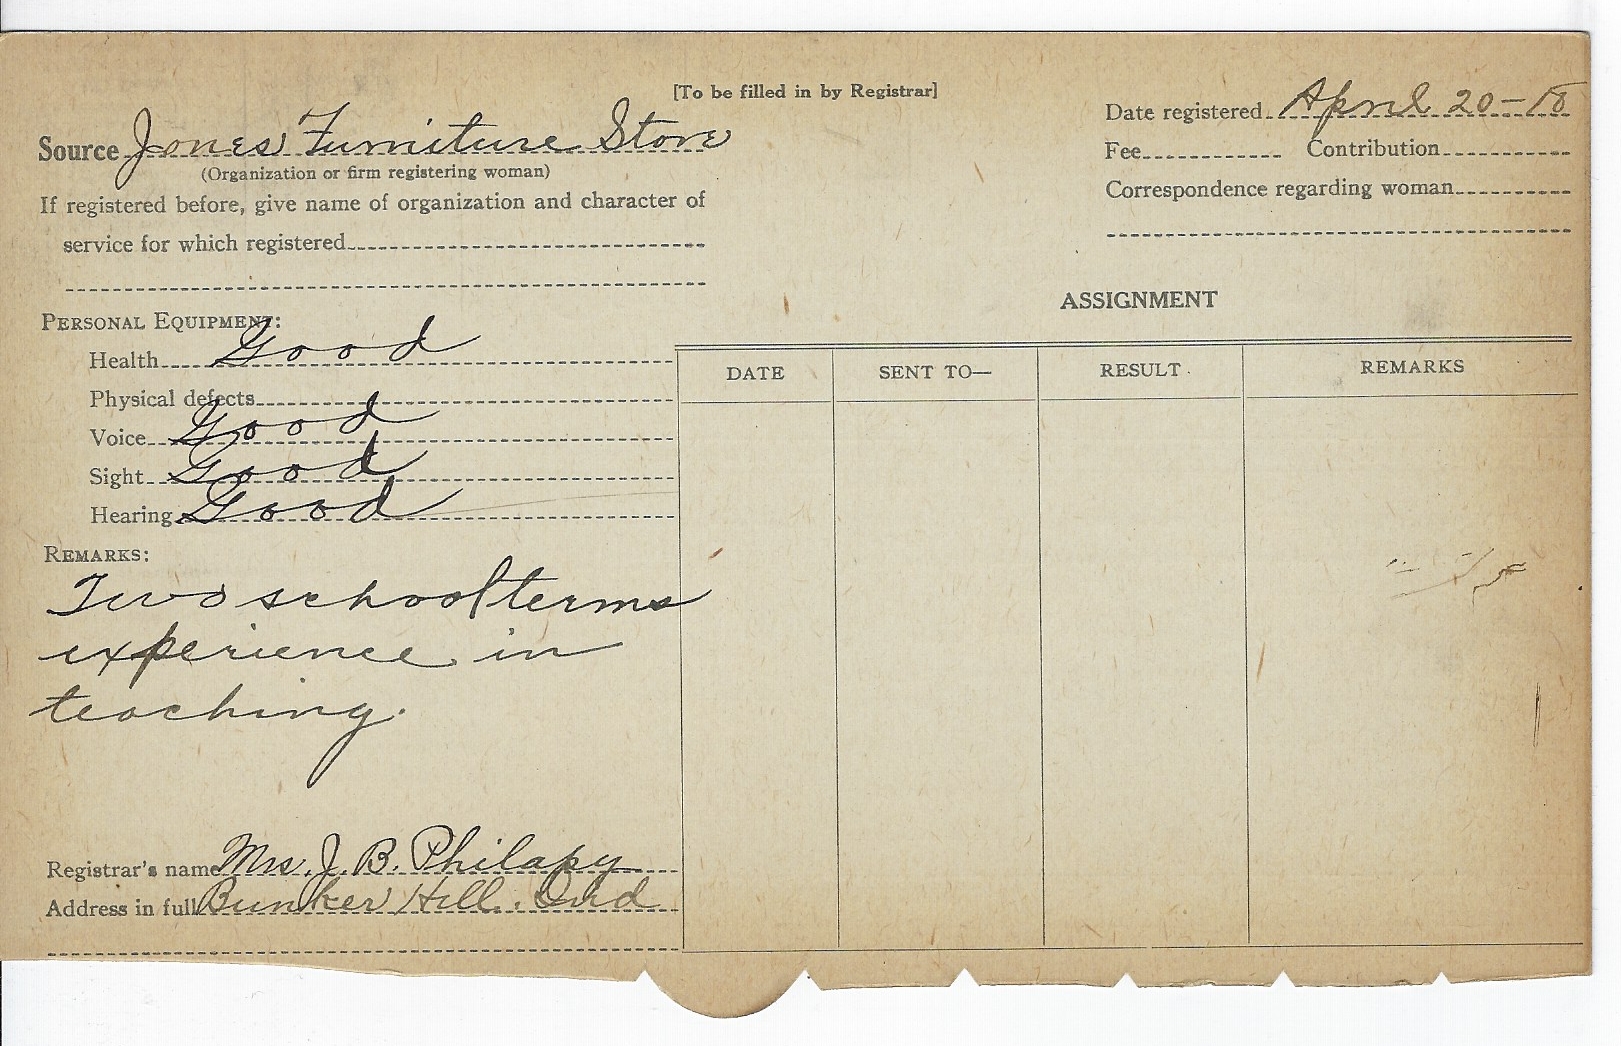 [To be filled in by Registrar]
Source Jones Furniture Store
(Organization or firm registering woman)
If registered before, give name of organization and character of
service for which registered
Date registered April 20-18
Fee Contribution
Correspondence regarding woman
PERSONAL EQUIPMENT:
Health Good
Physical defects
Voice Good
Sight Good
Hearing Good
REMARKS:
Two school terms
experience in
teaching.
Registrar's name Mrs. J. B. Philapy
Address in full Bunker Hill. Ind
ASSIGNMENT
DATE SENT TO— RESULT REMARKS